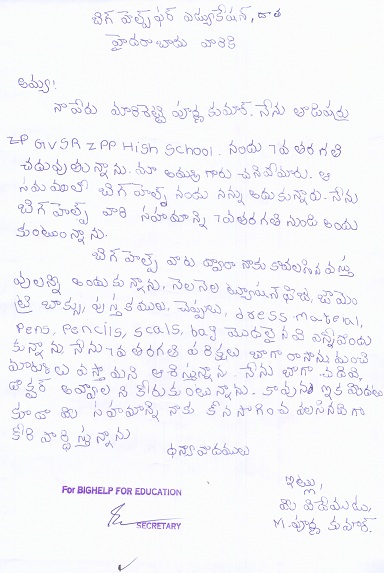 బిగ్ హెల్ప్ ఫర్ ఎడ్యుకేషన్, దాత
హైదరాబాదు వారికి
అమ్మా!
నా పేరు మారిశెట్టి పూర్ణ కుమార్. నేను తాడిపర్రు
ZP GVSR ZPP High School. నందు 7వ తరగతి
చదువుతున్నాను. మా అమ్మ గారు చనిపోయారు. ఆ
సమయంలో బిగ్ హెల్ప్ నందు నన్ను ఆదుకున్నారు. నేను
బిగ్ హెల్ప్ వారి సహాయాన్ని 7వ తరగతి నుండి అందు
కుంటున్నాను.
బిగ్ హెల్ప్ వారు ద్వారా నాకు కావలసిన వస్తు
వులన్ని అందుకున్నాను, నెలనెల ట్యూషన్ ఫీజు, జామెం
ట్రీ బాక్సు, పుస్తకములు, చెప్పులు, dress material,
Pens, Pencils, scals, bag మొదలైనవి ఎన్నో అందు
కున్నాను. నేను 7వ తరగతి పరీక్షలు బాగా రాసాను మంచి
మార్కులు వస్తాయని ఆశిస్తున్నాను. నేను బాగా చదివి,
డాక్టర్ అవ్వాలని కోరుకుంటున్నాను. కావున ఇక మీదట
కూడా మీ సహాయాన్ని నాకు కొనసాగించవలసినదిగా
కోరి ప్రార్థిస్తున్నాను
ధన్యవాదములు
ఇట్లు,
మీ విధేయుడు,
M. పూర్ణ కుమార్.
For BIGHELP FOR EDUCATION
SECRETARY